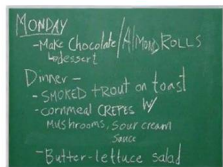 MONDAY
- Make Chocolate/Almond ROLLS
4 dessert
Dinner -
- SMOKED TROUT on toast
- cornmeal CREPES W/
Mushrooms, Sour cream
Sauce
- Butter-lettuce salad